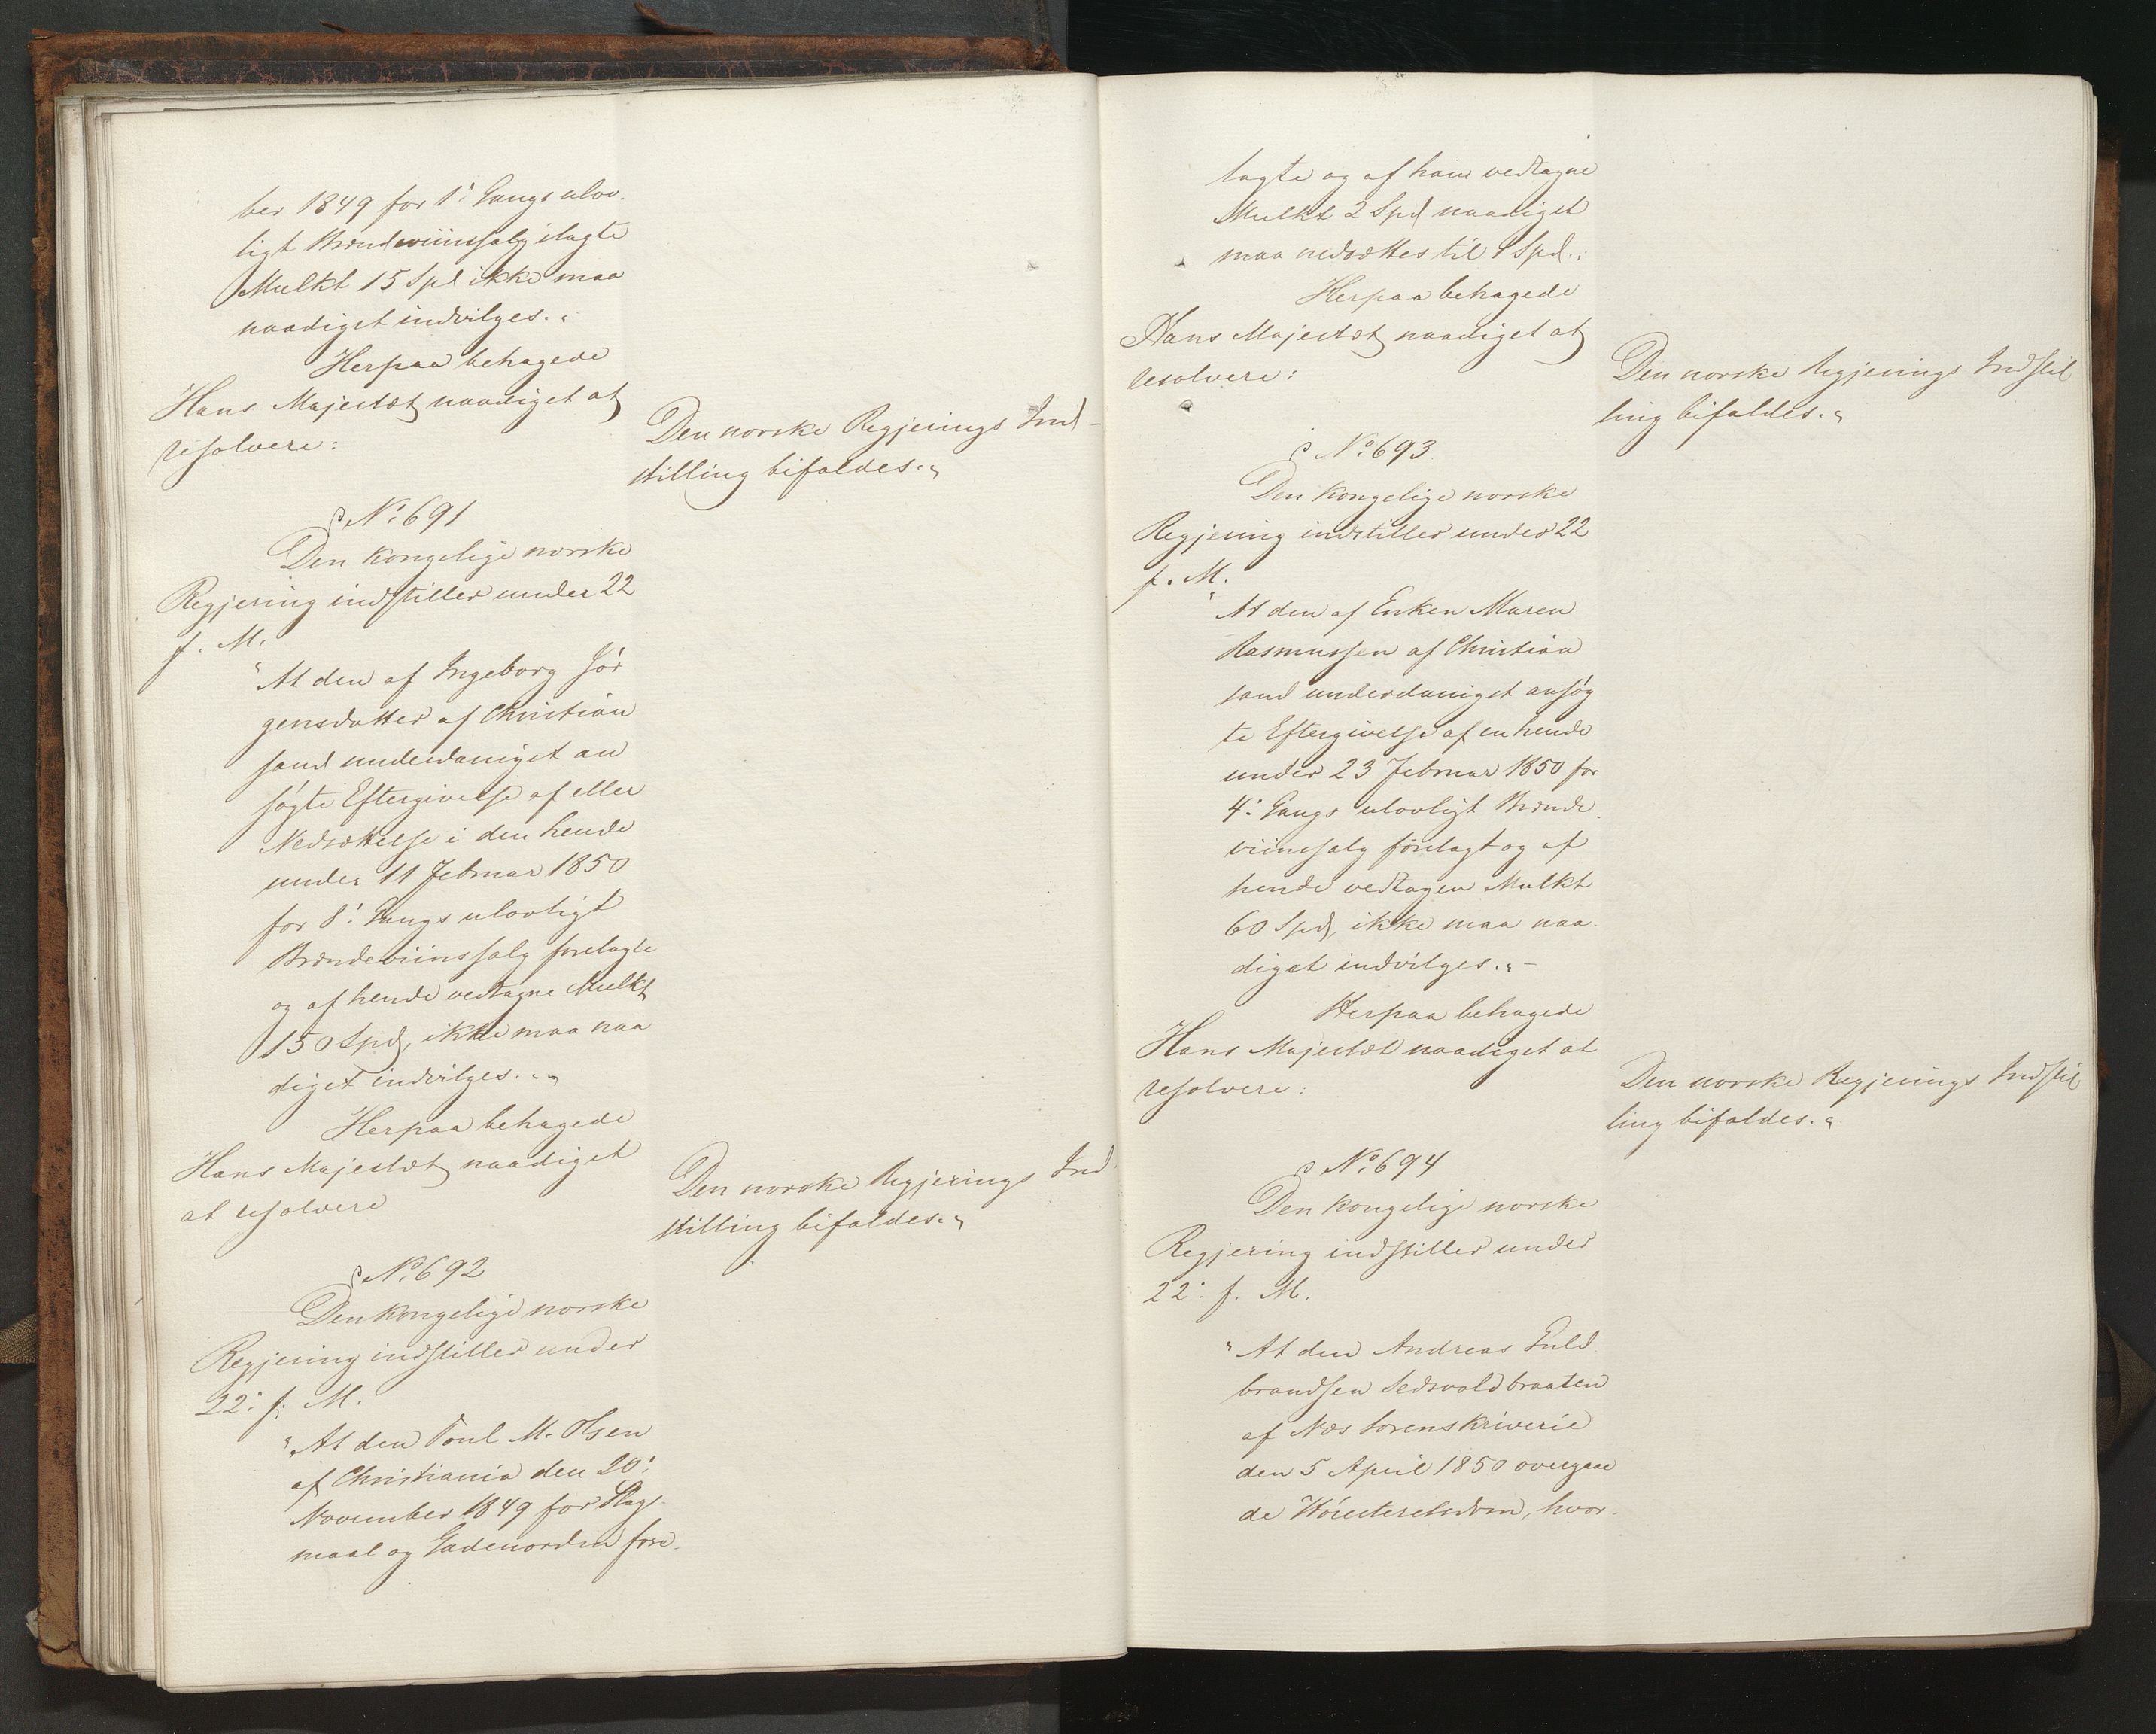 ber 1849 for 1: Gangs ulov-
ligt Brændeviinssalg ilagte
Mulkt 15 Spd ikke maa
naadigst indvilges."
Herpaa behagede
Hans Majestæt naadigst at
resolvere:
Den norske Regjerings Ind-
stilling bifaldes."
No 691
Den kongelige norske
Regjering indstiller under 22
f. M.
"At den af Ingeborg Jør
gensdatter af Christian
sand underdanigst an
søgte Eftergivelse af eller
Nedsættelse i den hende
under 11 Februar 1850
for 8: Gangs ulovligt
Brændeviinssalg forelagte
og af hende vedtagne Mulkt
150 Spd, ikke maa naa
digst indvilges."
Herpaa behagede
Hans Majestæt naadigst
at resolvere
Den norske Regjerings Ind
stilling bifaldes."
No 692
Den kongelige norske
Regjering indstiller under
22: f. M.
"At den Poul M. Olsen
af Christiania den 20:
November 1849 for Slags-
maal og Gadeuorden fore-
lagte og af ham vedtagne
Mulkt 2 Spd naadigst
maa nedsættes til 1 Spd."
Herpaa behagede
Hans Majestæt naadigst at
resolvere:
Den norske Regjerings Indstil
ling bifaldes."
No 693
Den kongelige norske
Regjering indstiller under 22
f. M.
"At den af Enken Maren
Rasmussen af Christian
sand underdanigst ansøg
te Eftergivelse af en hende
under 23 Februar 1850 for
4: Gangs ulovligt Brænde-
viinssalg forelagt og af
hende vedtagen Mulkt
60 Spd, ikke maa naa-
digst indvilges."-
Herpaa behagede
Hans Majestæt naadigst at
resolvere:
Den norske Regjerings Indstil
ling bifaldes."
No 694
Den kongelige norske
Regjering indstiller under
22: f. M.
"At den Andreas Guld
brandsen Sedsvoldbraaten
af Næs Sorenskriverie
den 5 April 1850 overgaae
de Høiesteretsdom, hvor-